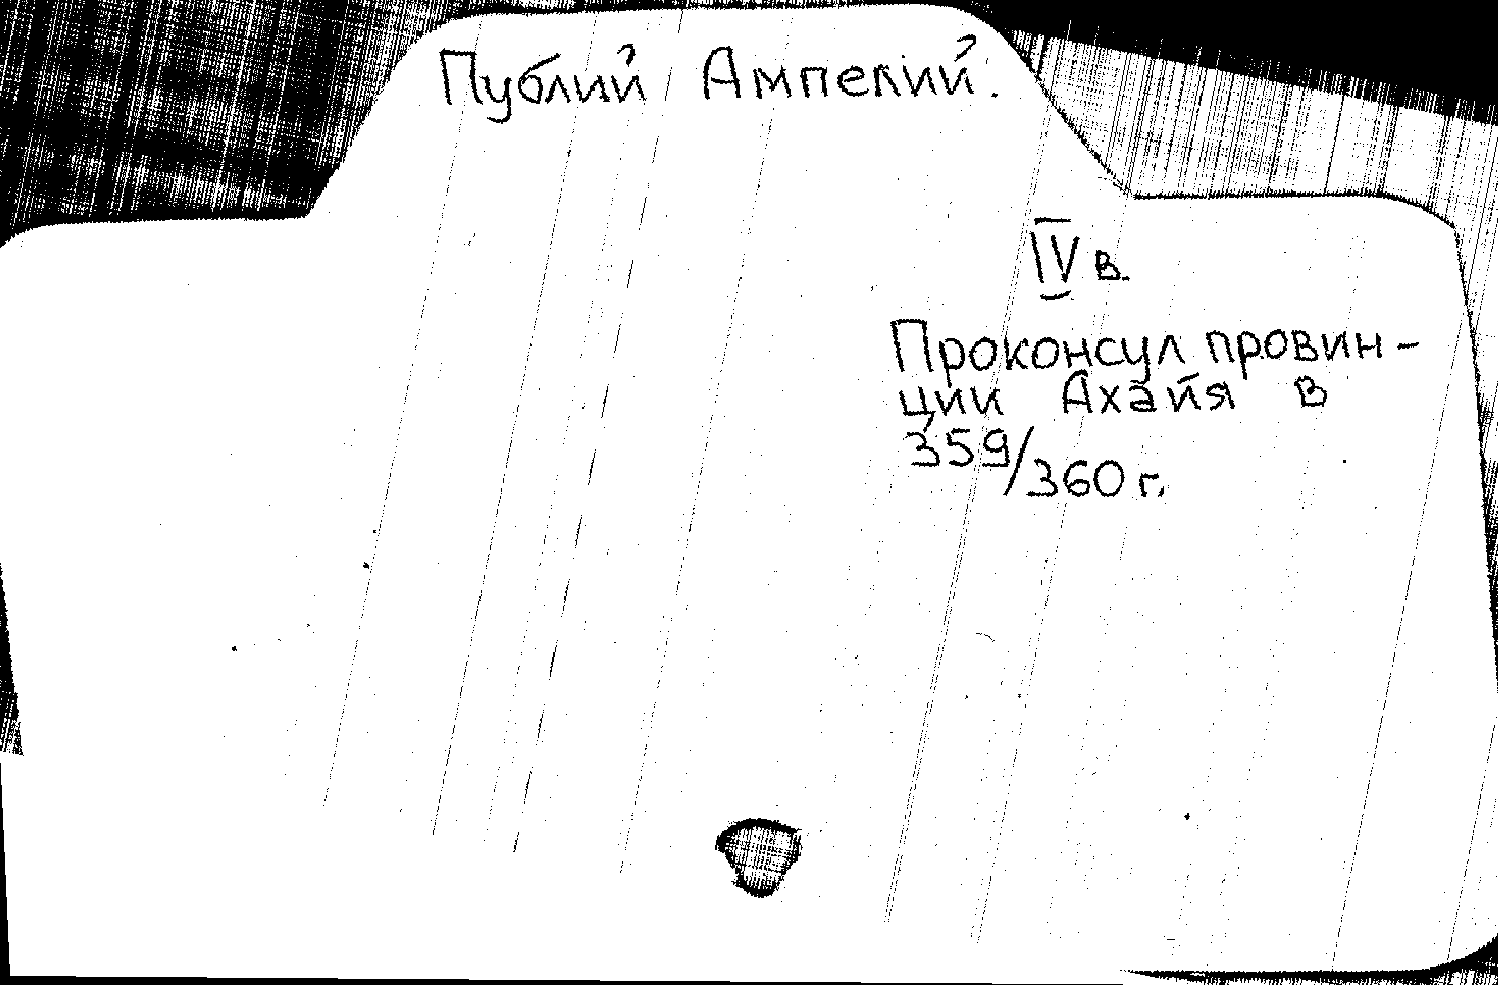 Публий Ампелий.
IV в.
Проконсул провин-
ции Ахайя в
359/360 г.